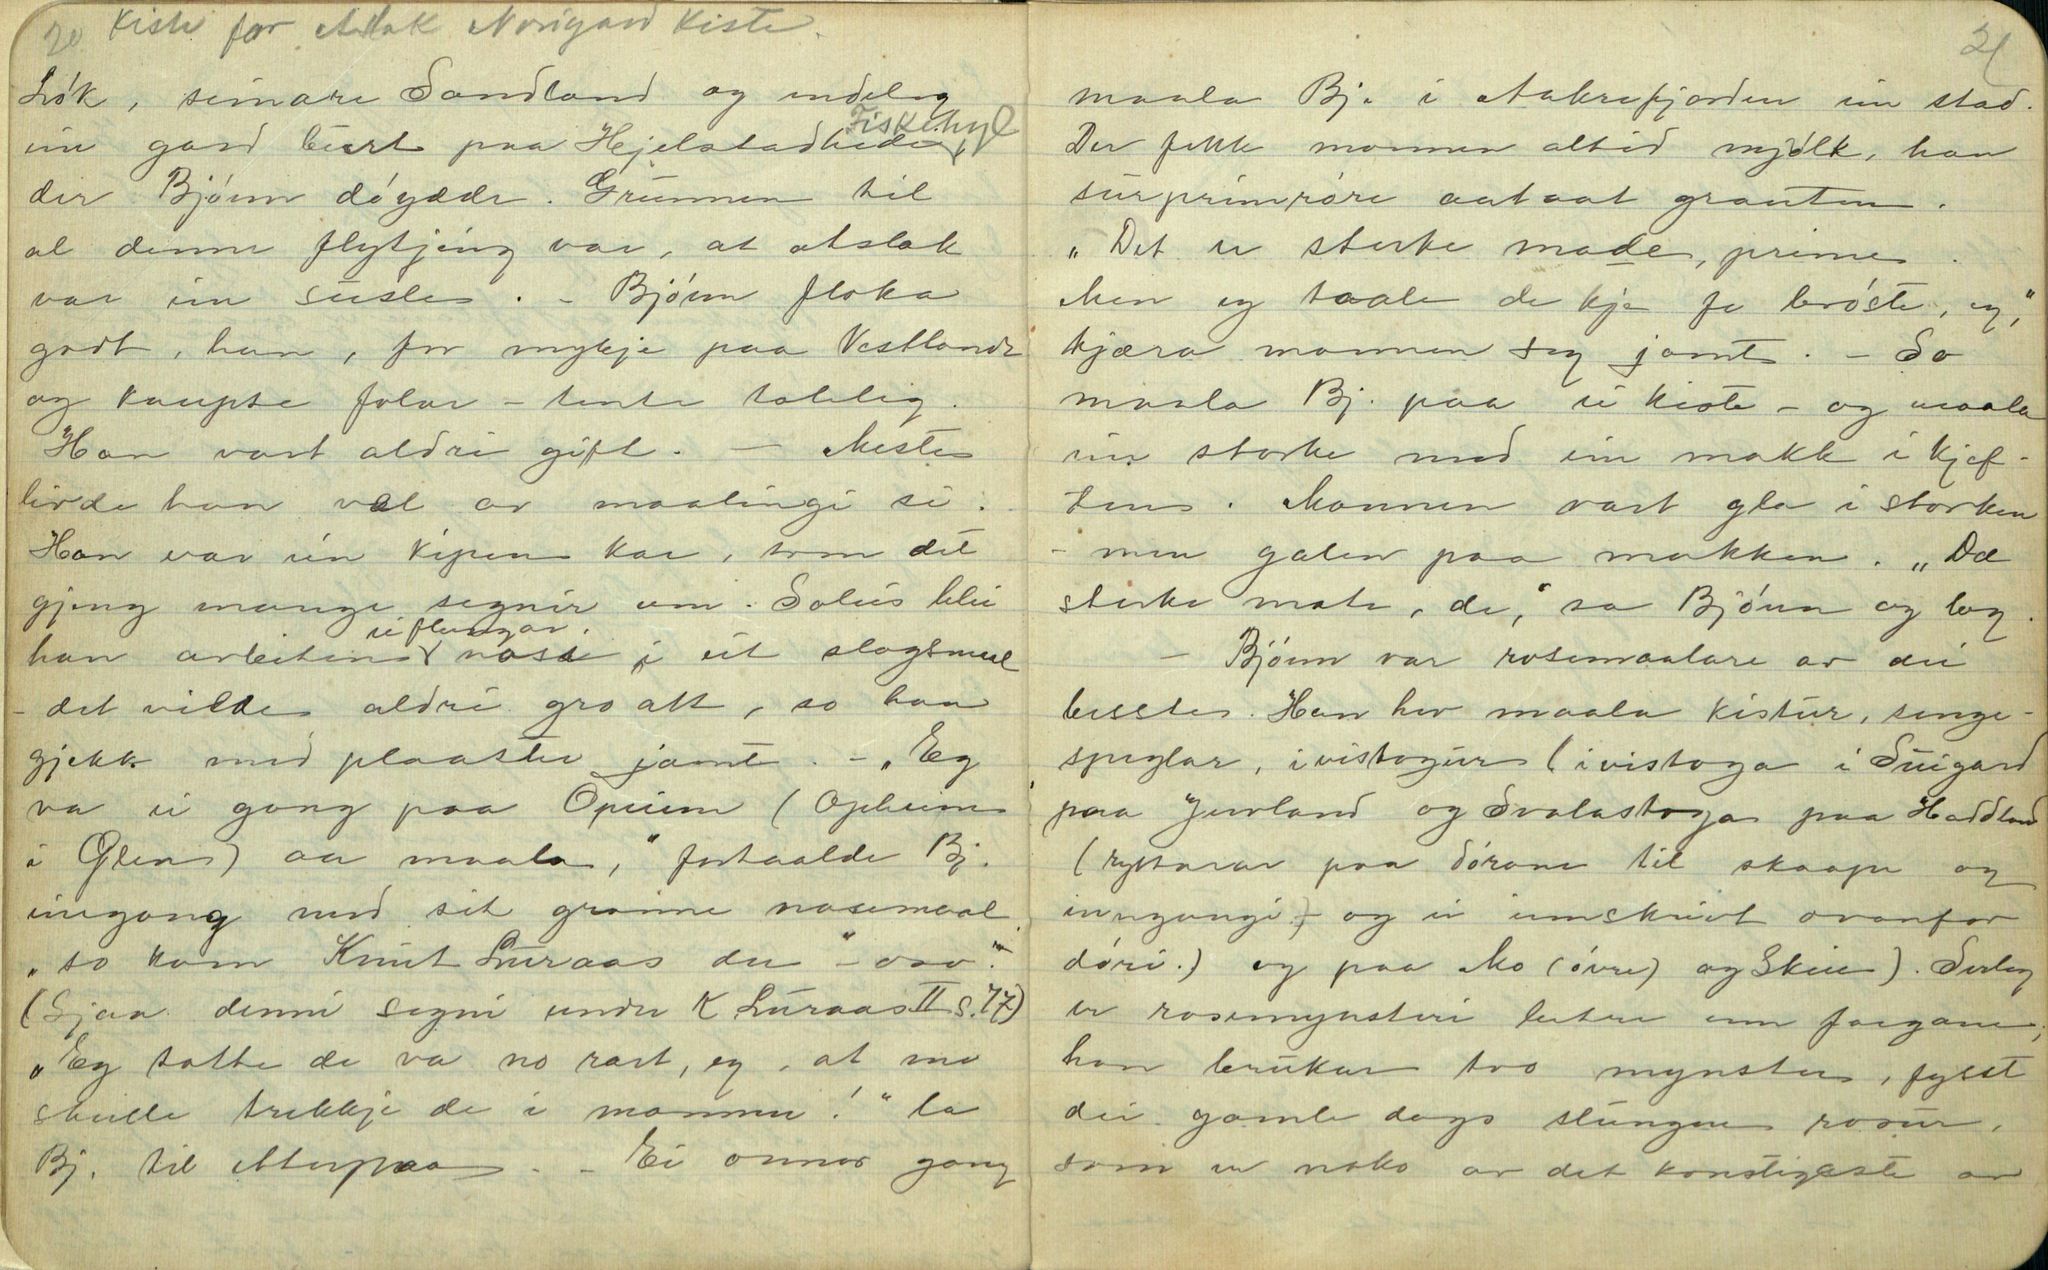 20 Kiste for Aslak Norigard kiste.
Løk, seinare Sandland og endeleg
ein gard burt paa Hjelstadheidi, Fiskehyl
der Bjónn døydde. Grunnen til
al denne flytjing var, at Aslak
var ein susler. - Bjónn floka
godt, han, for mykje paa Vestlande
og kaupte folar - tente toleleg.
Han vart aldri gift. - Meste
livde han væl av maalingi si.
Han var ein kipen kar, som det
gjeng mange segnir um. Soleis blei
han arbeiten i nase i eit slagsmaal
ei flengor.
- det vilde aldri gro att, so han
gjekk med plaaster jamt. - "Eg
va ei gong paa Opeim (Opheim
i Glen) aa maala," fortaalde Bj.
eingong med sit grannе nasemaal
"so kom Knut Luraas der" - oso."
(Sjaa denni segni under K Luraas II s. 17)
"Eg totte de va no rart, eg, at me
skulle trekkje de i mannen!" la
Bj. til Atterpaa. - Ei onnor gong
21
maala Bj. i Aakrefjorden ein stad.
Der fekk mannen altid mjólk, han
surprimrøre aataat grauten.
"Det er sterke made, prime.
Men eg taale de kje fe brøste, eg,"
kjæra mannen seg jamt. - So
maala Bj. paa ei kiste - og maala
ein storke med ein makk i kjef-
ten. Mannen vart gla i storken
- men galen paa makken. "Dæ
sterke mate, de," sa Bjónn og log.
- Bjónn var rosemaalare av dei
besste. Han hev maala kistur, senge-
speglar, ivistogur (ivistoga i Suigard
paa Juvland og Svalastoga paa Haddland
(ryttarar paa dórane til skaape og
inngangi - og ei innskrivt ovanfor
dóri.) og paa Mo (óvre) og Skeie). Serleg
er rosemynsteri betre enn fargane;
han brukar tvo mynster, fysst
dei gamle dags slungne rosur,
som er noko av det konstigaste av